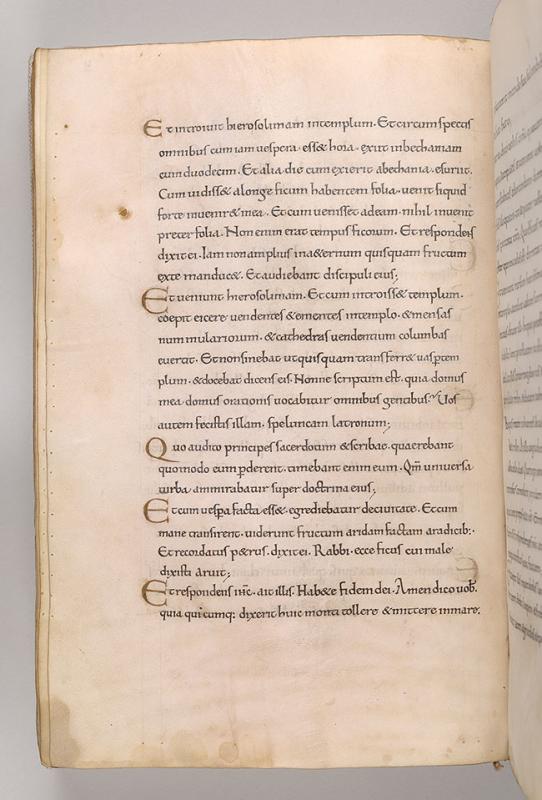 Et introiuit hierosolimam intemplum. Et circumspectis
omnibus cum iam uespera esse& hora. exiit inbechaniam
cum duodecim. Et alia die cum exierit abechania. esuriit.
Cum uidiss& alonge ficum habentem folia. uenit siquid
forte inuenir& inea. Et cum uenisset adeam. nihil inuenit
preter folia. Non enim erat tempus ficorum. Et respondens
dixit ei. Iam non amplius in&ernum quisquam fructum
exte manduc&. Et audiebant discipuli eius;
Et ueniunt hierosolimam. Et cum introiss& templum.
coepit eicere uendentes & ementes intemplo. & mensas
nummulariorum. & cathedras uendentium columbas
euertit. Et non sinebat ut quisquam transferr& uas per tem
plum. & docebat dicens eis. Nonne scriptum est. quia domus
mea. domus orationis uocabitur omnibus gentibus? Uos
autem fecistis illam. speluncam latronum;
Quo audito principes sacerdotum & scribae. quaerebant
quomodo eum pderent. timebant enim eum. Qm uniuersa
turba. ammirabatur super doctrina eius;
Et cum uespa facta ess&. egrediebatur deciuitate. Et cum
mane transirent. uiderunt ficum aridam factam aradicib:.
Et recordatus p&rus. dixit ei. Rabbi. ecce ficus cui male
dixisti aruit;
Et respondens ihc. ait illis. Hab&e fidem dei. Amen dico uob.
quia quicumq: dixerit huic monti tollere & mittere inmare.